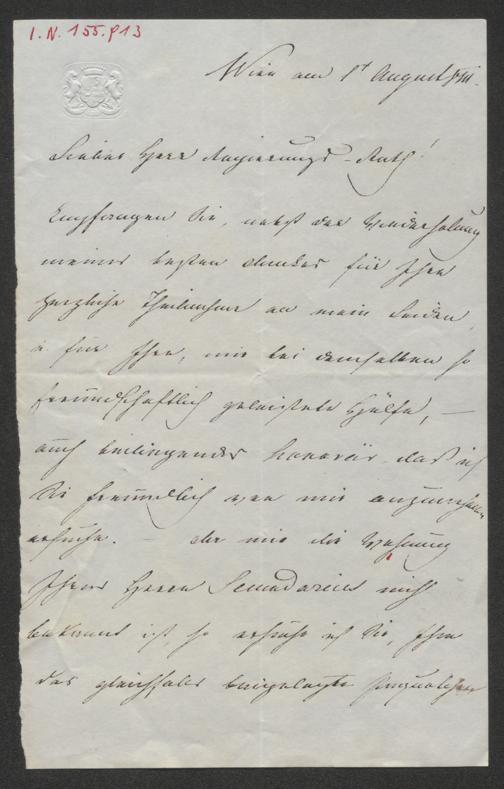 I. N. 155.913
Wien am 1t August
Lieber Herr Regierungs-Rath!
Empfangen Sie, nebst der Wiederholung
meines besten Dankes für Ihre
herzliche Theilnahme an mein Leiden,
u für Ihre, mir bei demselben so
freundschaftlich geleistete Hülfe, —
auch beiliegendes Honorar, daß ich
Sie freundlich von mir anzunehmen
ersuche. — Da mir die Wohnung
Ihres Herrn Secundarius nicht
bekannt ist, so ersuche ich Sie, Ihm
das gleichfalls beigelegte